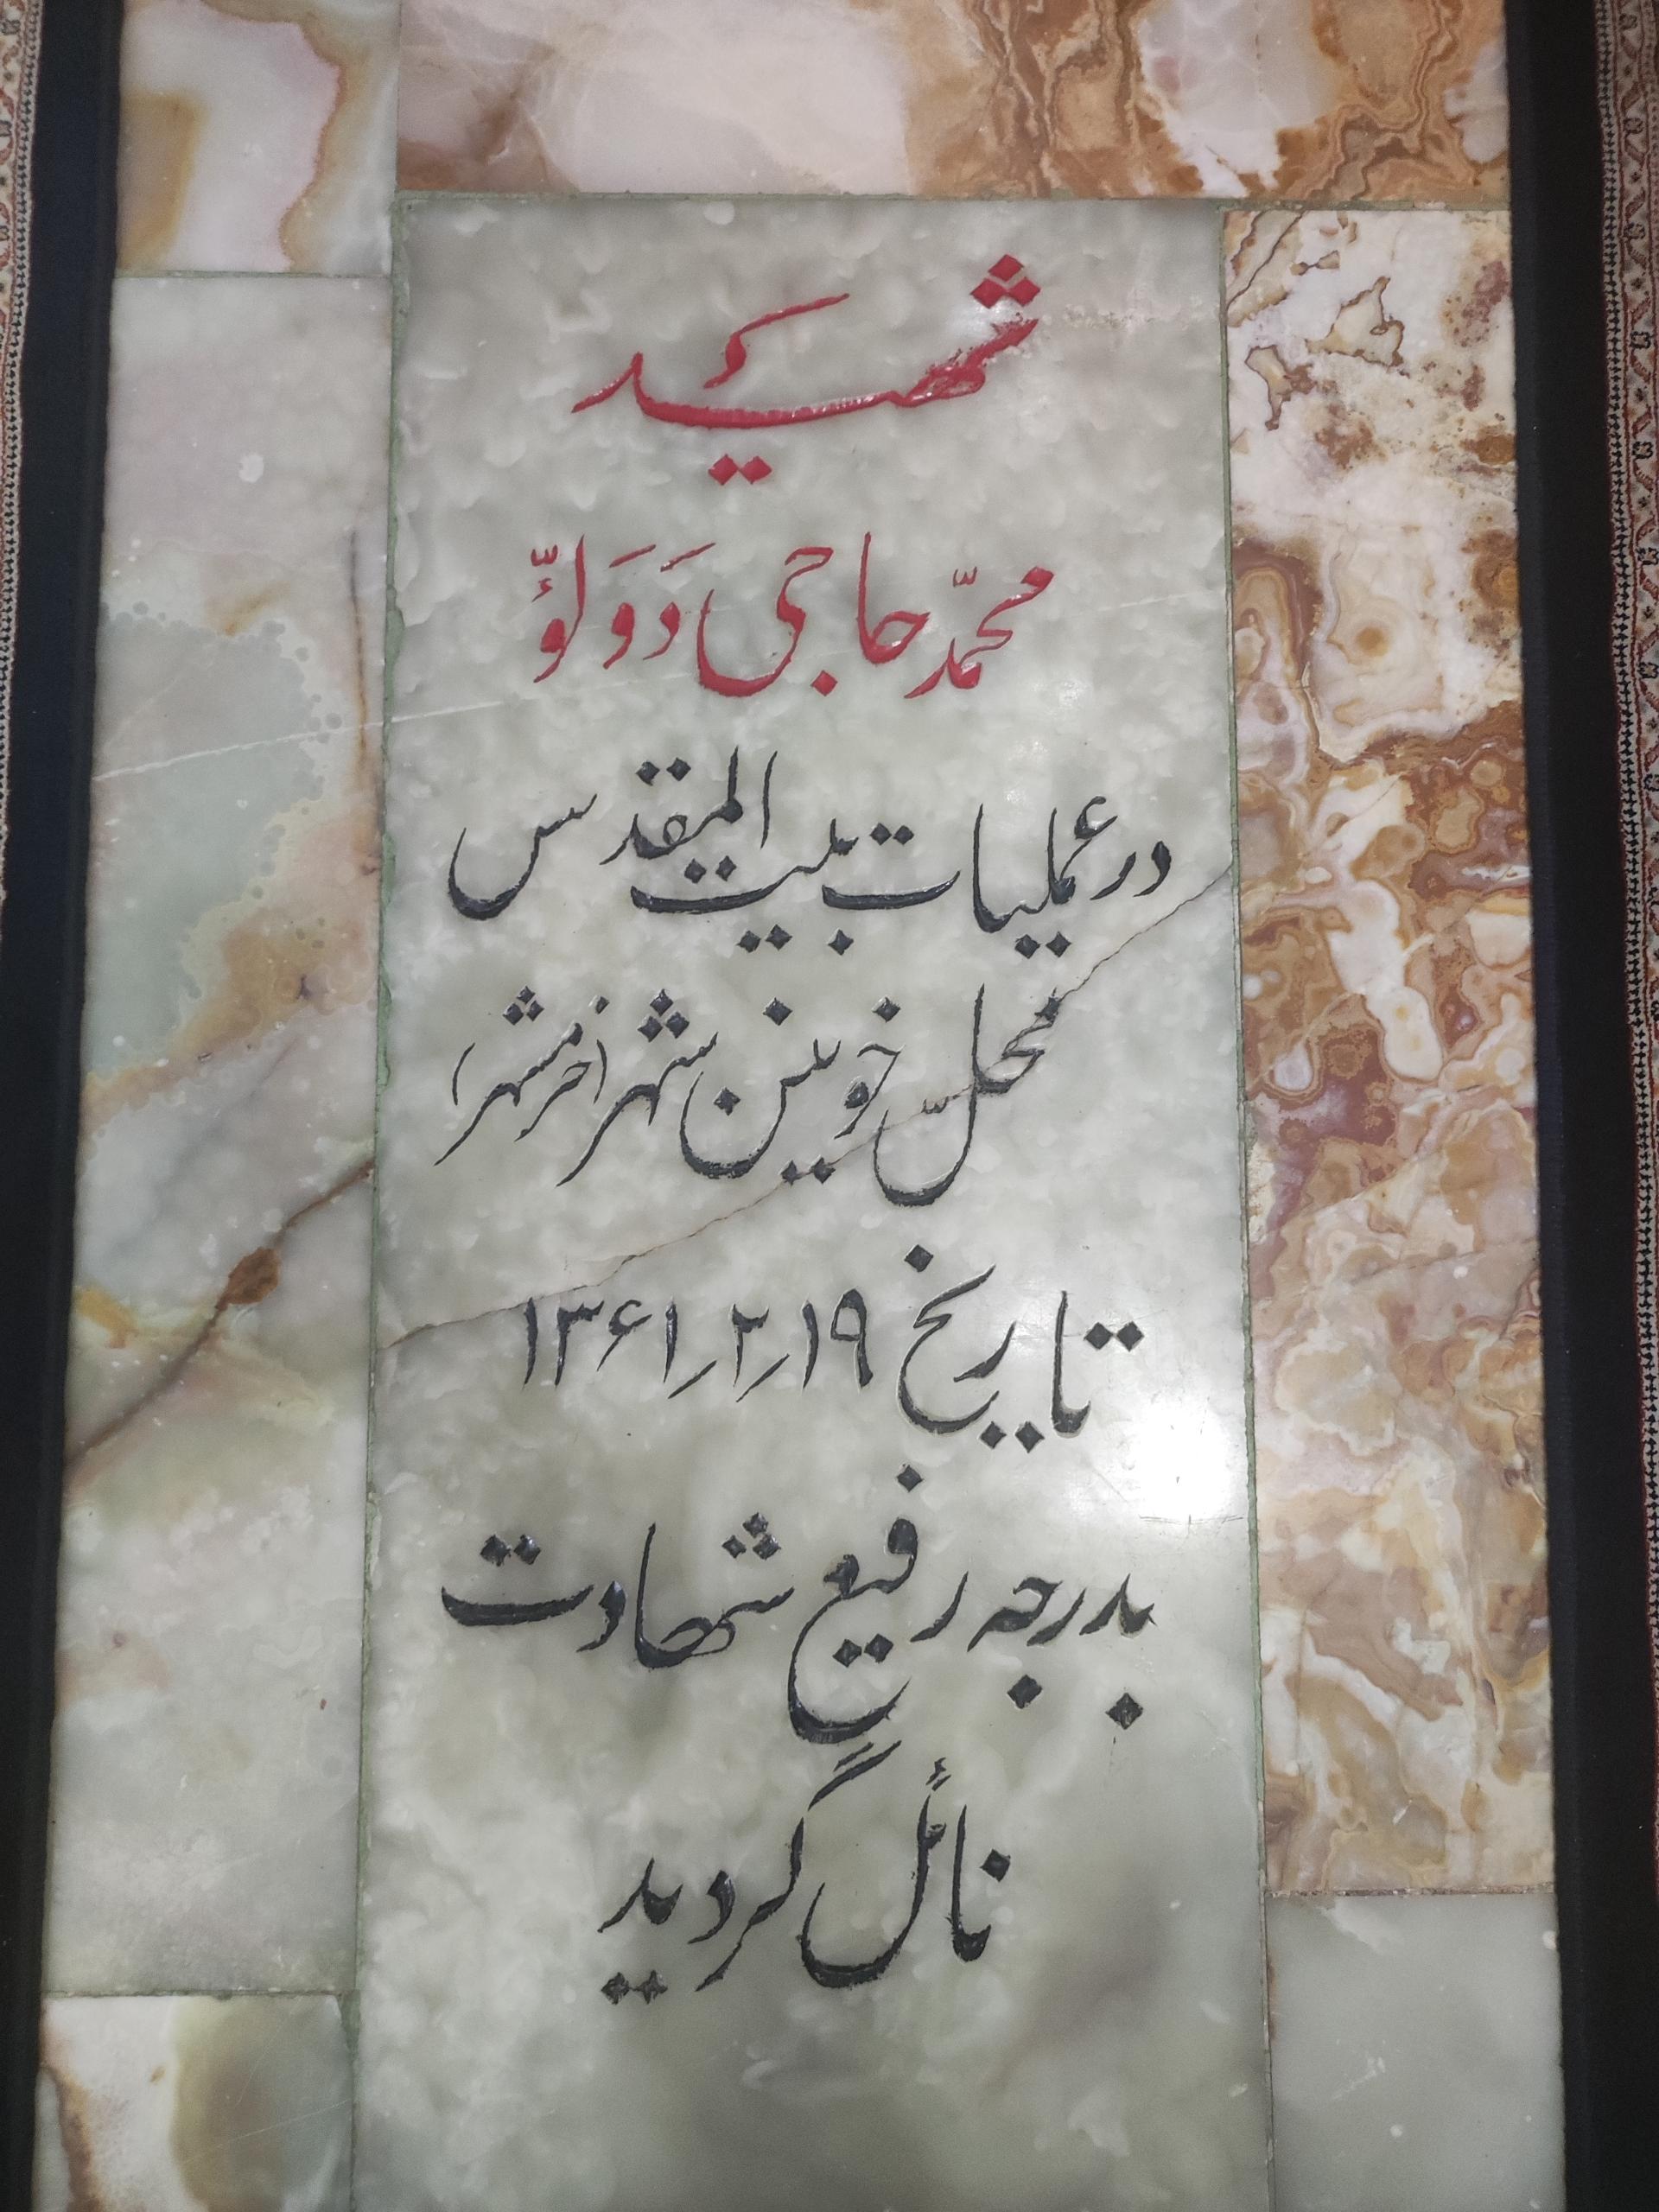 شهید
محمّد حاجی دَوَلوّ
در عملیات بیت المقدس
محلّ خونین شهر (خرمشهر)
تاریخ ۱۳۶۱٫۲٫۱۹
بدرجه رفیع شهادت
نائل گردید